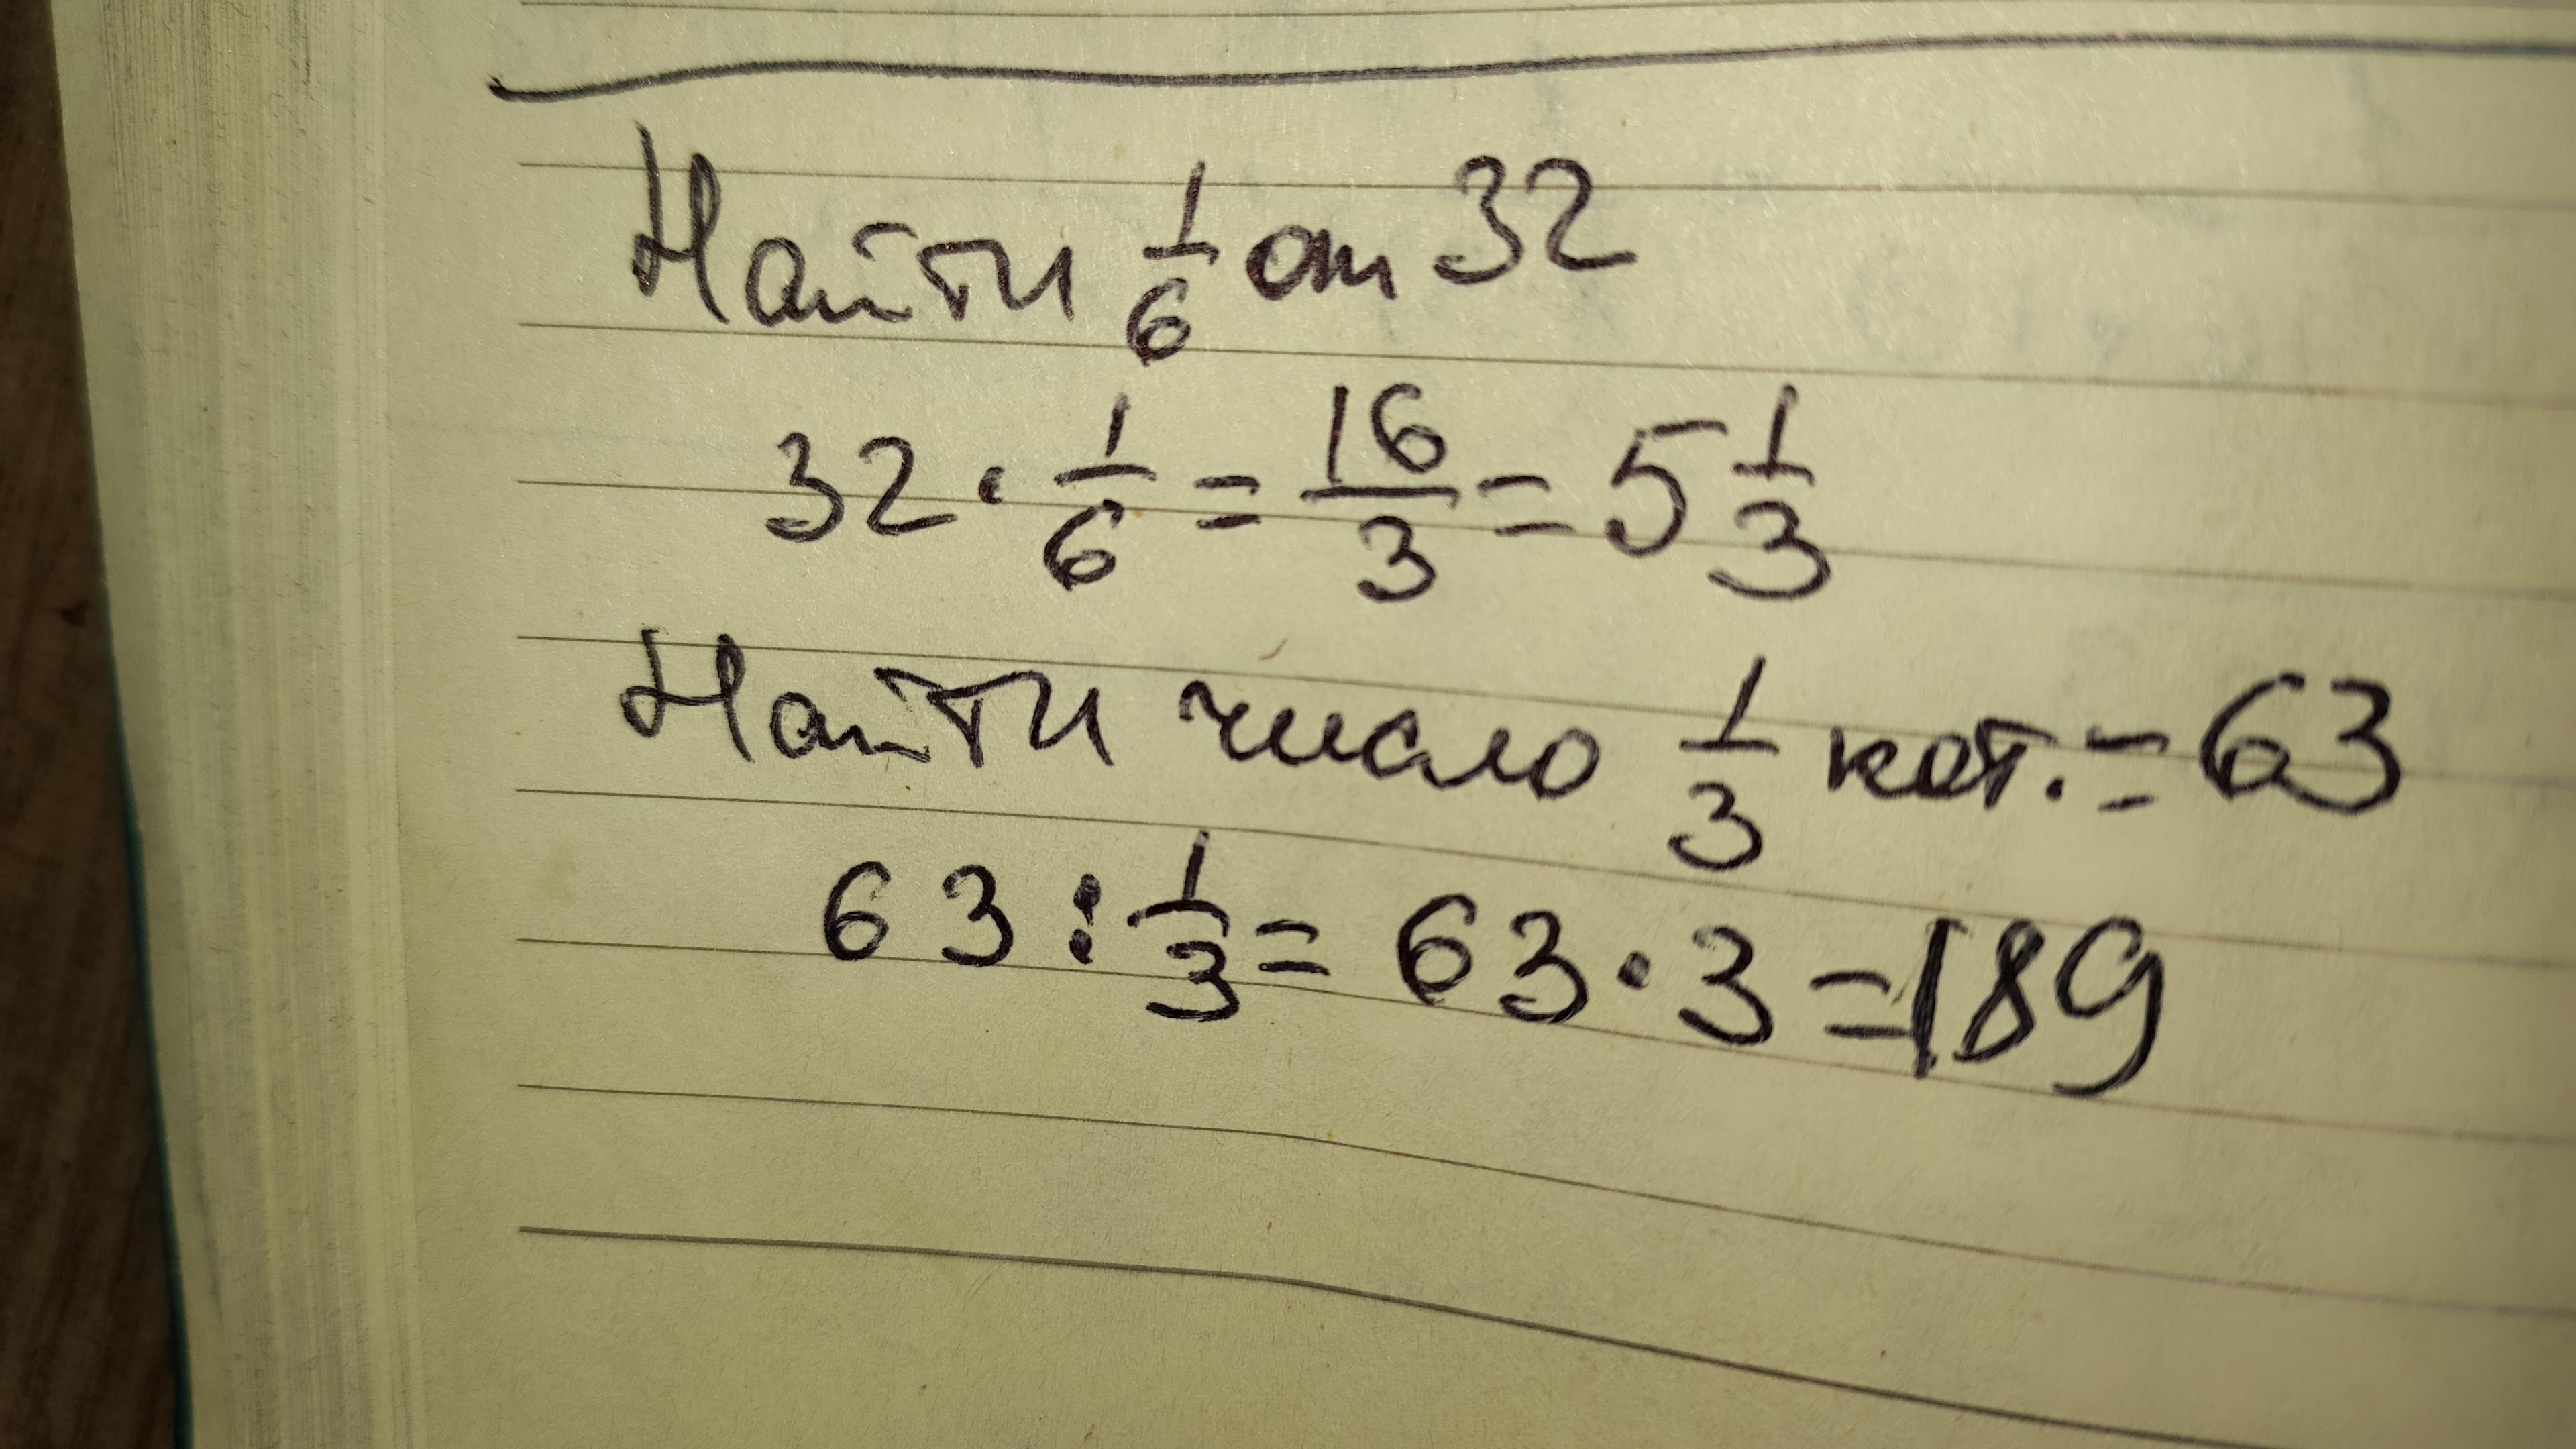 Найти 1/6 от 32
32 · 1/6 = 16/3 = 5 1/3
Найти число 1/3 кот. = 63
63 : 1/3 = 63 · 3 = 189